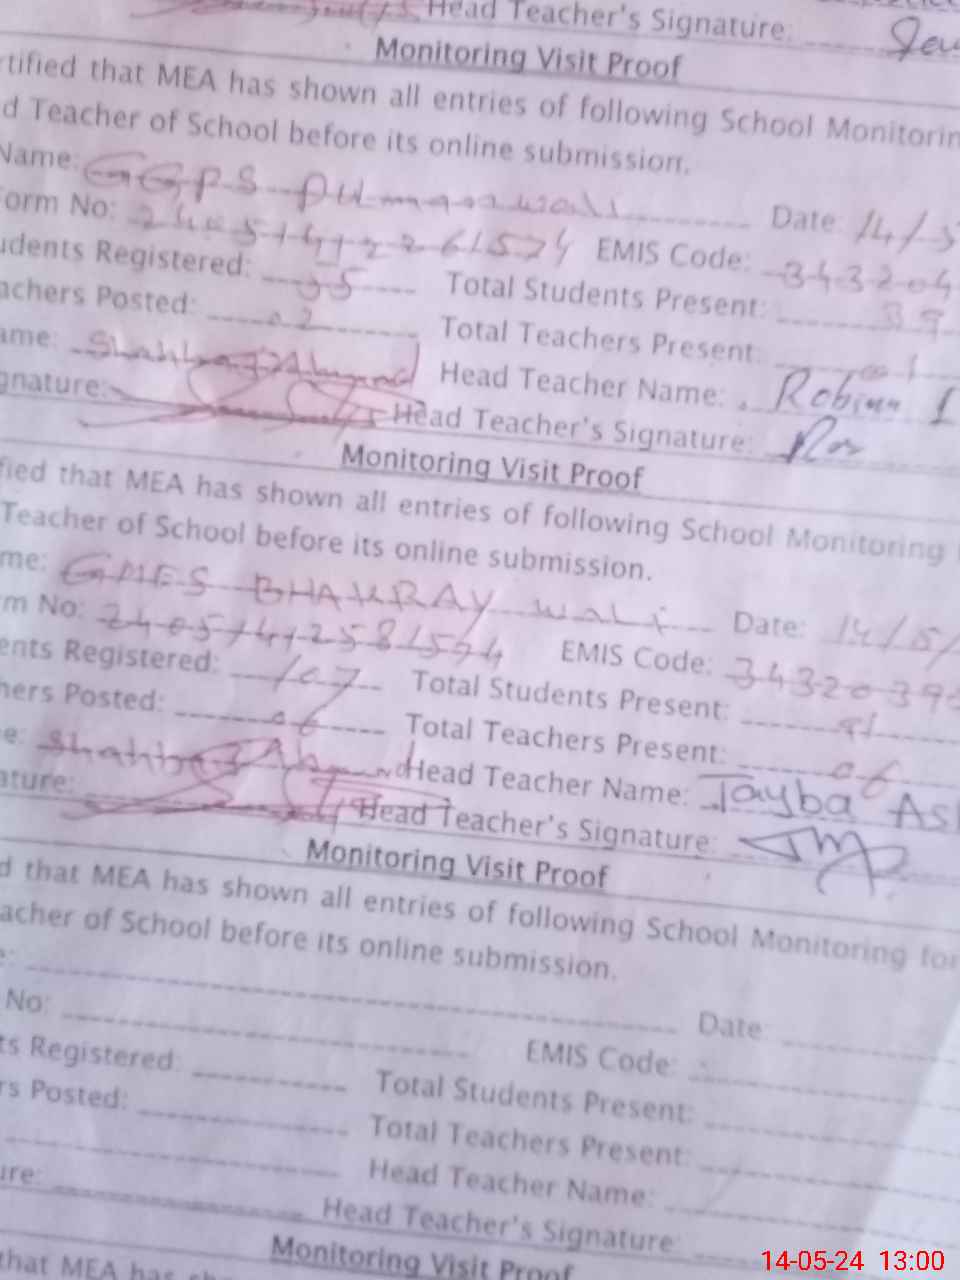 Head Teacher's Signature:
Monitoring Visit Proof
rtified that MEA has shown all entries of following School Monitorin
d Teacher of School before its online submission.
Name: GGPS Date: 14/5
orm No: EMIS Code: 343204
udents Registered: 55 Total Students Present: 39
achers Posted: 02 Total Teachers Present: 01
ame: Shahbaz Ahmad Head Teacher Name: Robina I
gnature: Head Teacher's Signature:
Monitoring Visit Proof
fied that MEA has shown all entries of following School Monitoring
Teacher of School before its online submission.
me: GMES BHAKRAY wali Date: 14/5/
rm No: 24051412581574 EMIS Code: 3432039
ents Registered: 107 Total Students Present: 91
hers Posted: 06 Total Teachers Present: 06
e: Shahbaz Ahmad Head Teacher Name: Tayba Asl
ature: Head Teacher's Signature:
Monitoring Visit Proof
d that MEA has shown all entries of following School Monitoring for
acher of School before its online submission.
e: Date
No: EMIS Code:
ts Registered: Total Students Present:
rs Posted: Total Teachers Present:
Head Teacher Name:
ure: Head Teacher's Signature:
Monitoring Visit Proof
that MEA has
14-05-24 13:00